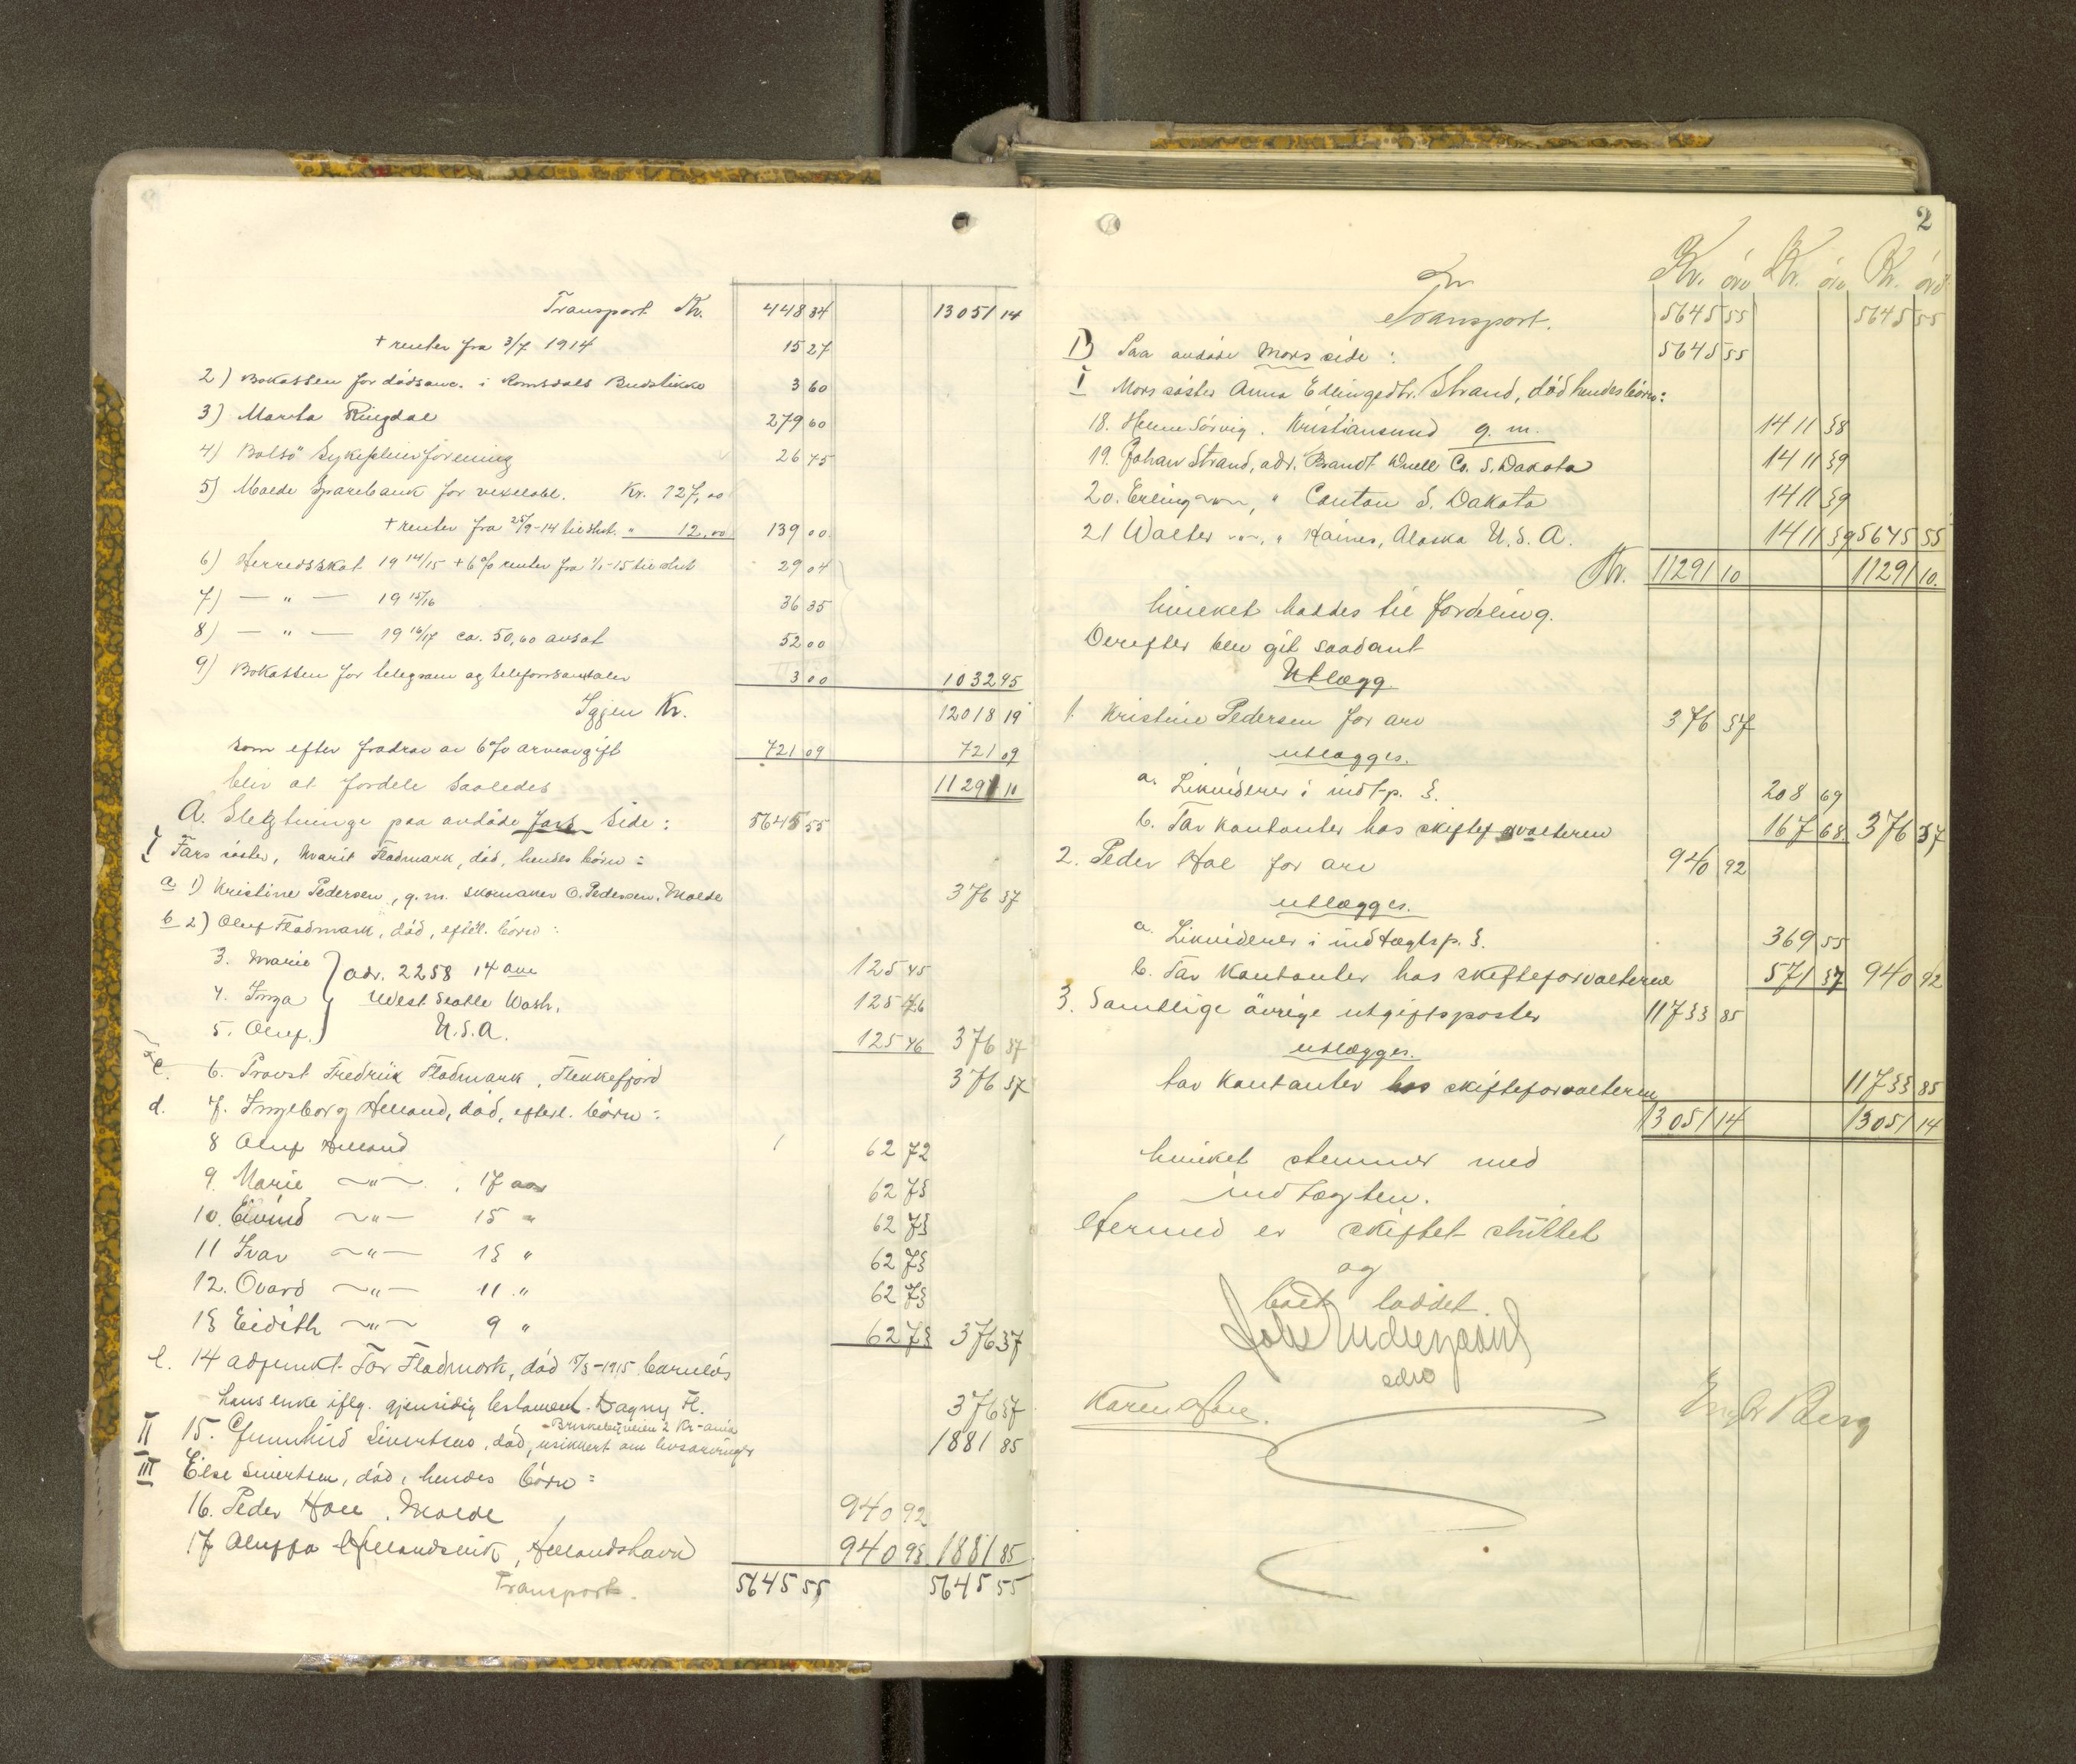 Transport Kr. 448 34 13051 14
+ renter fra 3/7 1914 15 27
2) Bokassen for dødsanv. i Romsdals Budstikke 3 60
3) Marta Ringdal 279 60
4) Bolsö Sykepleierforening 26 75
5) Molde Sparebank for vexelobl. Kr. 127,00
+ renter fra 25/9-14 til slut. " 12.00 139 00
6) Herredsskat 19 14/15 + 6% renter fra 1/1-15 til slut 29 04
7) — " — 19 15/16 36 35
8) — " — 19 16/17 ca. 50,60 avsat 52 00
9) Bokassen for telegram og telefonsamtaler 3 00 1032 95
Igjen Kr. 12018 19
som efter fradrag av 6% arveavgift 721 09 721 09
bliv at fordele saaledes 11291 10
A. Slegtninge paa avdøde Fars Side: 5645 55
I Fars søster, Marit Fladmark, død, hendes børn:
a 1) Kristine Pedersen, g.m. skomaker O. Pedersen, Molde 376 37
b 2) Oluf Fladmark, død, efterl. børn:
3. Marie } adr. 2258 14 ave 125 45
4. Inga West Seatle Wash. 125 46
5. Oluf. U.S.A. 125 46 376 37
c. 6. Provst Fredrik Fladmark, Flekkefjord 376 37
d. 7. Ingeborg Helland, død, efterl. børn:
8 Oluf Helland 62 72
9. Marie —"— , 17 aar 62 73
10. Eivind —"— 15 " 62 73
11 Ivar —"— 13 " 62 73
12. Ovard —"— 11 " 62 73
13 Eidith —"— 9 " 62 73 376 37
e. 14 adjunkt Tor Fladmark, død 15/3-1915 barnløs
hans enke iflg. gjensidig testament Dagny Fl. 376 37
- Briskebyveien 2 Kr-ania
II 15. Gunnhild Sivertsen, død, usikkert om livsarvinger 1881 85
III Else Sivertsen, død, hendes børn:
16. Peder Hoel, Molde 940 92
17 Oluffa Hellandsvik, Hellandshavn 940 93 1881 85
Transport. 5645 55 5645 55
2
Kr. øre Kr. øre Kr. øre
Transport. 5645 55 5645 55
B) Paa avdøde Mors side: 5645 55
I Mors søster Anna Edlingsdtr. Strand, død hendes børn:
18. Helene Sørvig. Kristiansund g. m. 1411 38
19. Johan Strand, adr. Brandt Duell Co. S. Dakota 1411 39
20. Erling —"—, " Canton S. Dakota 1411 39
21 Walter —"—, " Haines, Alaska U.S.A. 1411 39 5645 55
Kr. 11291 10 11291 10.
hvilket haddes til fordeling.
Derefter blev git saadant
Utlægg
1. Kristine Pedersen for arv 376 37
utlægges.
a. Likviderer i indt.p. 3. 208 69
b. Tar kontanter hos skifteforvalteren 167 68 376 37
2. Peder Hoel for arv 940 92
utlægges.
a. Likviderer i indtægtsp. 3. 369 55
b. Tar kontanter hos skifteforvalteren 571 37 940 92
3. Samtlige øvrige utgiftsposter 11733 85
utlægges.
tar kontanter hos skifteforvalteren 11733 85
13051 14 13051 14
hvilket stemmer med
indtægten.
Hermed er skiftet sluttet
og
boet loddet.
Karen
Berg